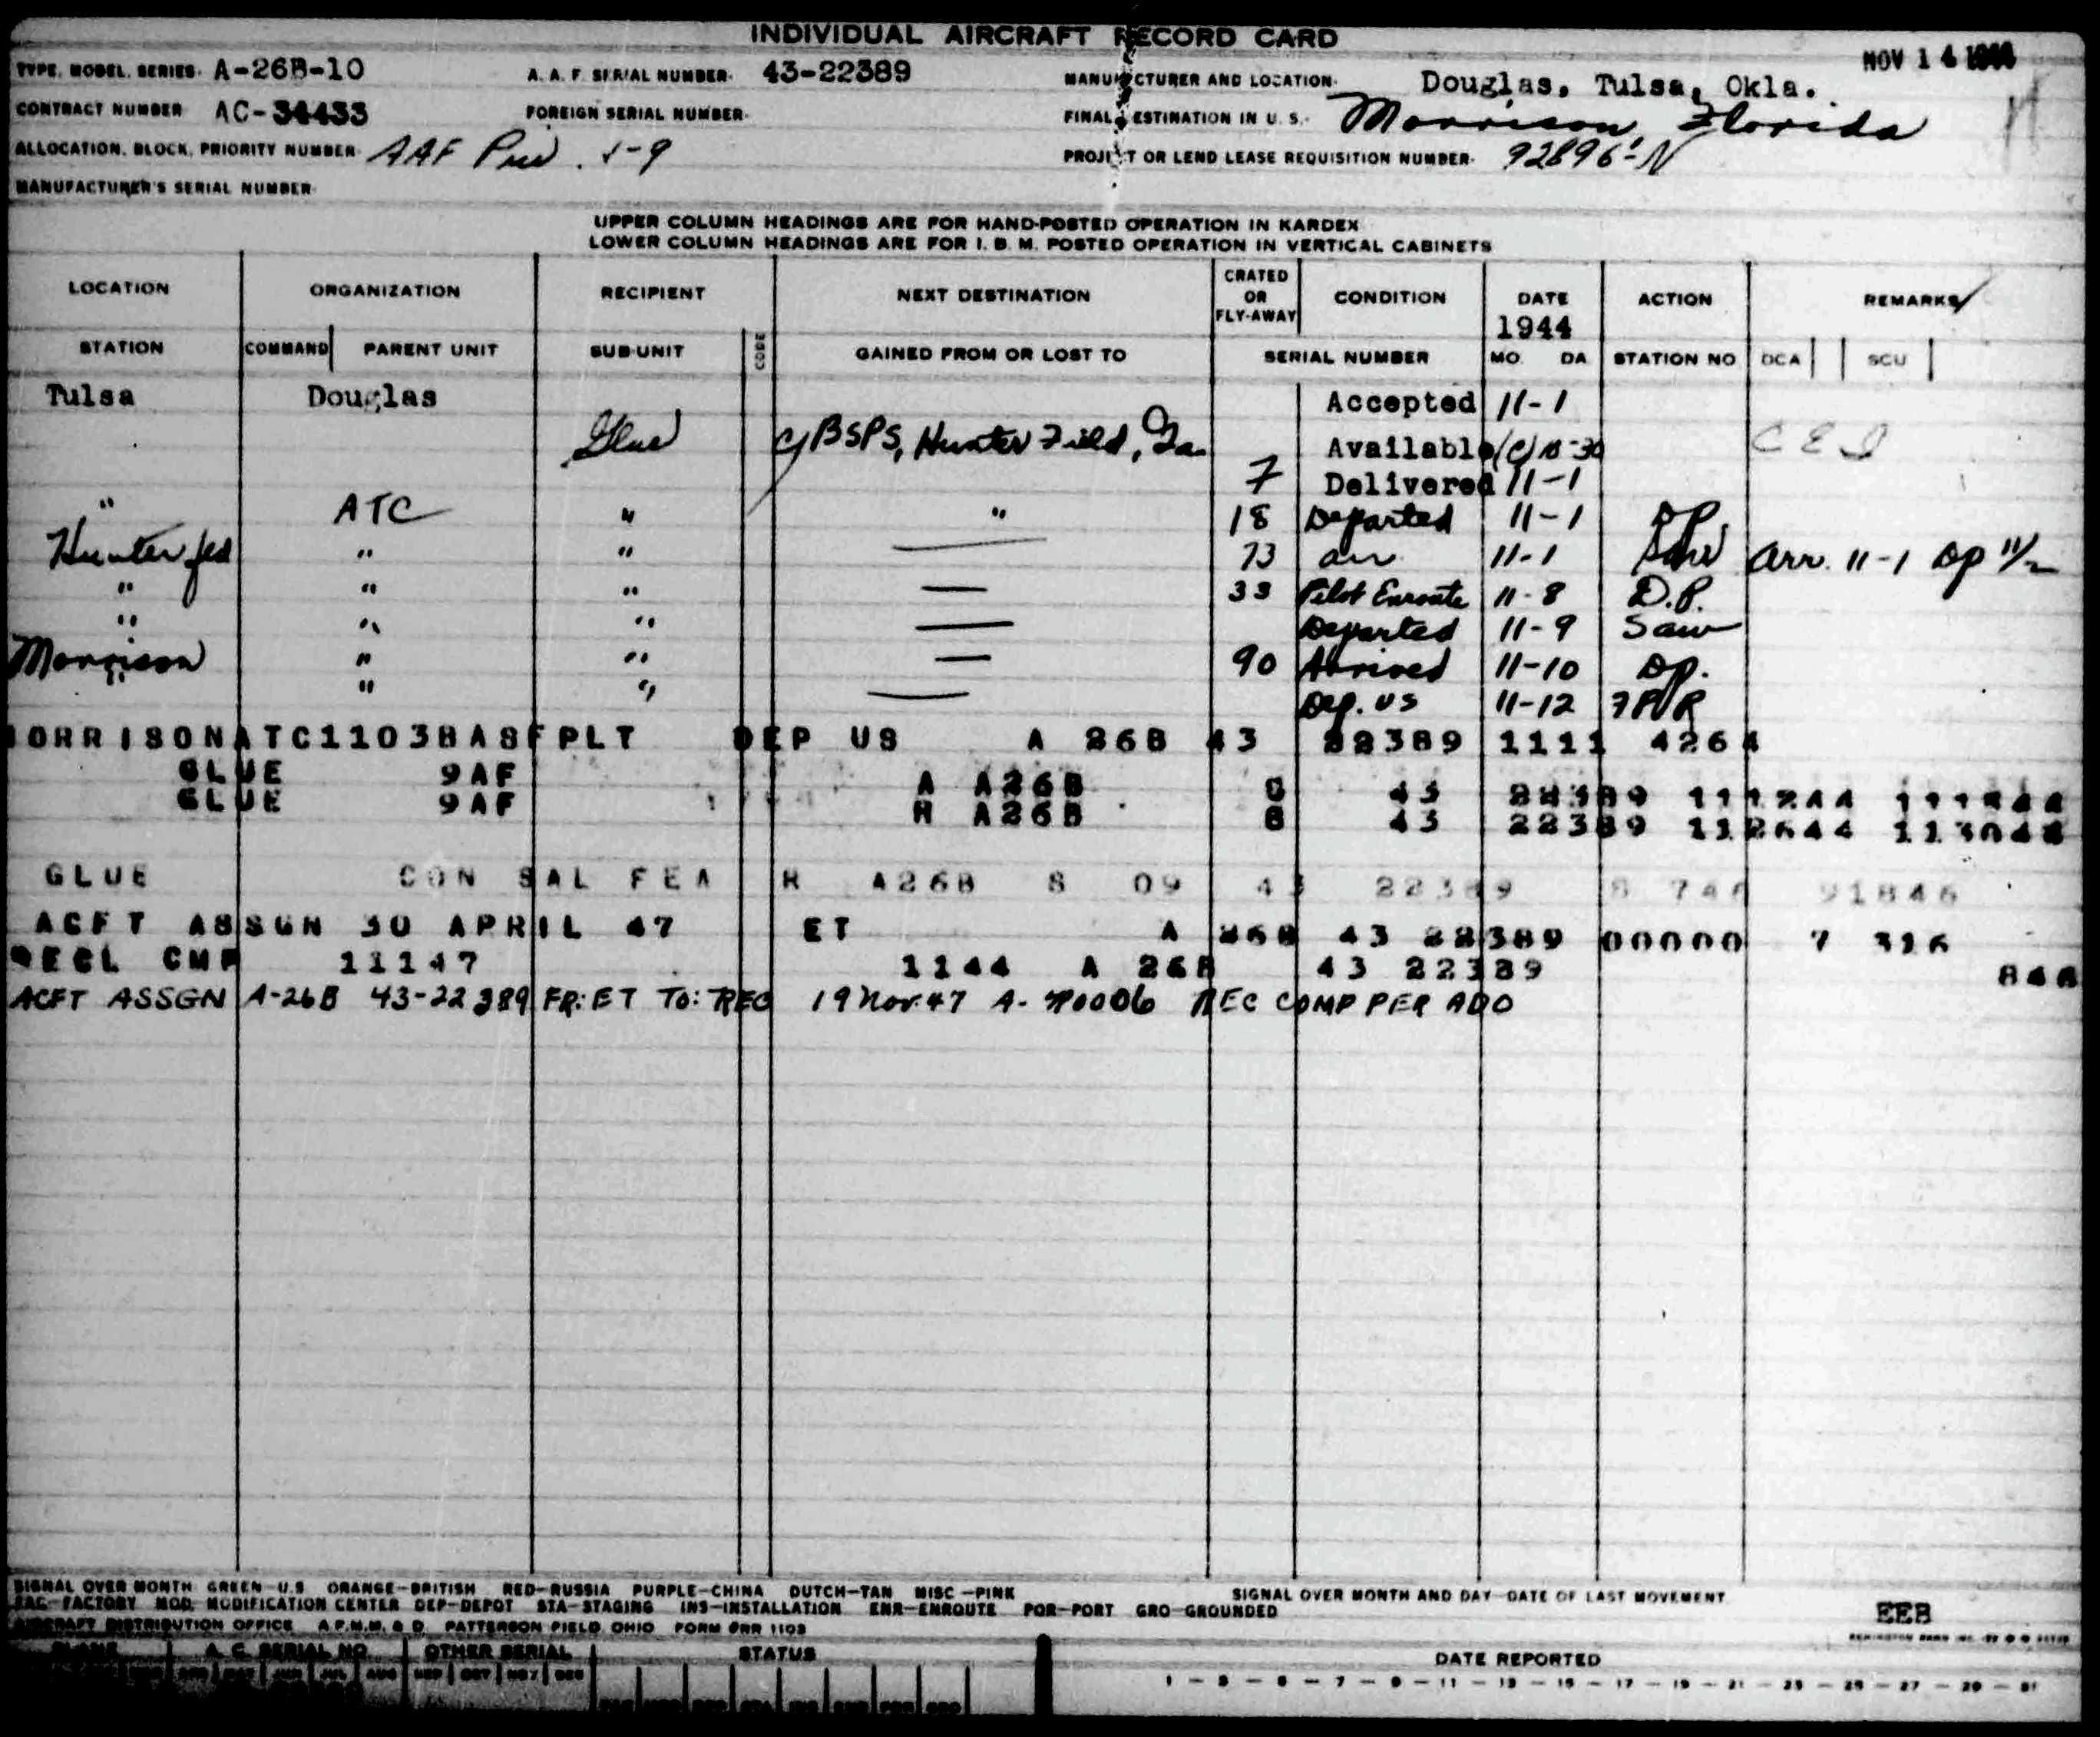 INDIVIDUAL AIRCRAFT RECORD CARD
NOV 14 1944
TYPE, MODEL, SERIES. A-26B-10 A. A. F. SERIAL NUMBER. 43-22389 MANUFACTURER AND LOCATION. Douglas, Tulsa, Okla.
CONTRACT NUMBER AC-34433 FOREIGN SERIAL NUMBER. FINAL DESTINATION IN U. S. Morrison, Florida
ALLOCATION, BLOCK, PRIORITY NUMBER. AAF 1-9 PROJECT OR LEND LEASE REQUISITION NUMBER. 92896-N
MANUFACTURER'S SERIAL NUMBER
UPPER COLUMN HEADINGS ARE FOR HAND-POSTED OPERATION IN KARDEX
LOWER COLUMN HEADINGS ARE FOR I. B. M. POSTED OPERATION IN VERTICAL CABINETS
LOCATION ORGANIZATION RECIPIENT NEXT DESTINATION CRATED OR FLY-AWAY CONDITION DATE 1944 ACTION REMARKS
STATION COMMAND PARENT UNIT SUB-UNIT CODE GAINED FROM OR LOST TO SERIAL NUMBER MO. DA STATION NO DCA SCU
Tulsa Douglas Accepted 11-1
Glue BSPS, Hunter Field, Ga. Available (C) CEI
7 Delivered 11-1
" ATC " " 18 Departed 11-1 DP
Hunter fld " " — 73 arr 11-1 arr. 11-1 Dp 11/2
" " " — 33 Pilot Enroute 11-8 D.P.
" " " — Departed 11-9 Saw
Morrison " " — 90 Arrived 11-10 Dp.
" " " — Dep. US 11-12
ORRISON ATC 1103BASFPLT DEP US A 26B 43 22389 1111 4264
GLUE 9AF A A26B 8 43 22389
GLUE 9AF H A26B 8 43 22389 112644 113044
GLUE CON SAL FEA H A26B 8 09 43 22389 91846
ACFT ASSGN 30 APRIL 47 ET A 26B 43 22389 00000 7 316
RECL CMP 11147 1144 A 26B 43 22389 846
ACFT ASSGN A-26B 43-22389 FR: ET TO: REC 19 Nov 47 REC COMP PER ADO
SIGNAL OVER MONTH GREEN—U.S. ORANGE—BRITISH RED—RUSSIA PURPLE—CHINA DUTCH—TAN MISC—PINK SIGNAL OVER MONTH AND DAY—DATE OF LAST MOVEMENT
FAC-FACTORY MOD. MODIFICATION CENTER DEP—DEPOT STA—STAGING INS—INSTALLATION ENR—ENROUTE POR—PORT GRO—GROUNDED
EEB
AIRCRAFT DISTRIBUTION OFFICE A.F.M.M. & D. PATTERSON FIELD OHIO FORM 1103
A. C. SERIAL NO. OTHER SERIAL STATUS DATE REPORTED
JUN JUL AUG SEP OCT NOV DEC
1 — 3 — 5 — 7 — 9 — 11 — 13 — 15 — 17 — 19 — 21 — 23 — 25 — 27 — 29 — 31